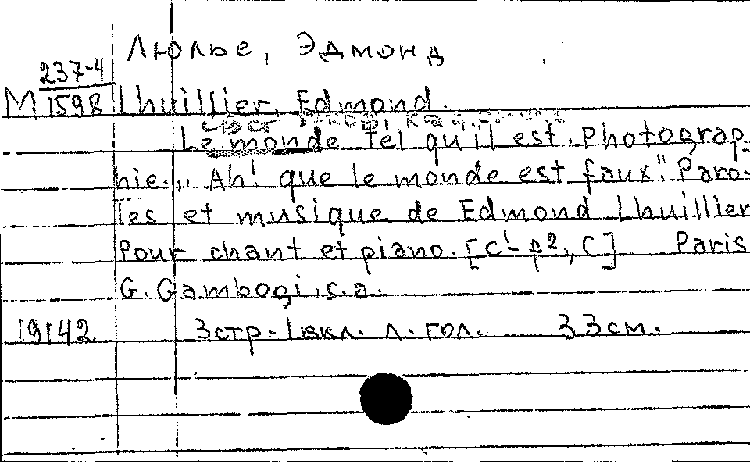 Люлье, Эдмонд
237-4
М 1598 Lhuillier, Edmond.
Le monde tel qu'il est. Photograp-
hie. „Ah! que le monde est faux". Paro-
les et musique de Edmond Lhuillier
Pour chant et piano. [c¹-g², C] Paris
G. Gambogi, s.a.
19142 3 стр. 1 вкл. л. гол. 33 см.